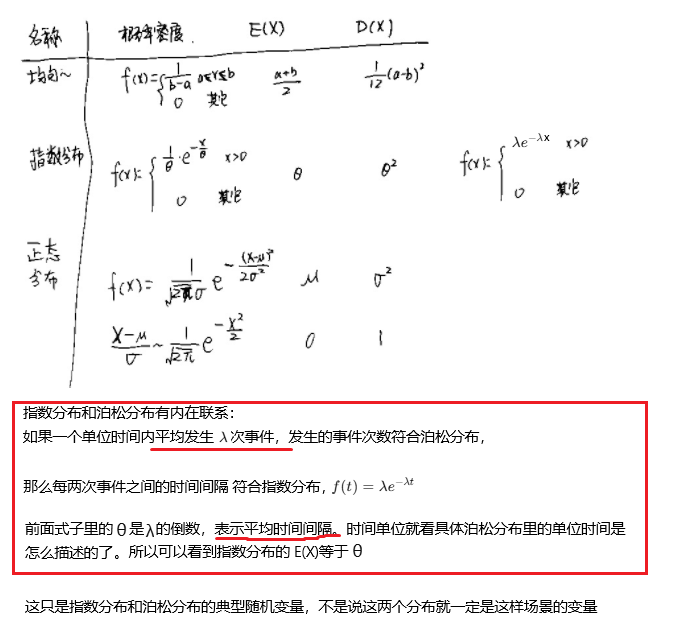 名称 概率密度 E(X) D(X)
均匀~ f(x)={ 1/(b-a) a≤x≤b a+b/2 1/12(a-b)²
0 其它
指数分布 f(x)={ 1/θ·e^(-x/θ) x>0 θ θ² f(x)={ λe^(-λx) x>0
0 其它 0 其它
正态分布
f(x)= 1/(√2π σ) e^(-(x-μ)²/2σ²) μ σ²
(X-μ)/σ ~ 1/√2π e^(-x²/2) 0 1
指数分布和泊松分布有内在联系：
如果一个单位时间内平均发生 λ 次事件，发生的事件次数符合泊松分布，
那么每两次事件之间的时间间隔 符合指数分布，f(t) = λe^(-λt)
前面式子里的 θ 是λ的倒数，表示平均时间间隔。时间单位就看具体泊松分布里的单位时间是
怎么描述的了。所以可以看到指数分布的 E(X)等于 θ
这只是指数分布和泊松分布的典型随机变量，不是说这两个分布就一定是这样场景的变量